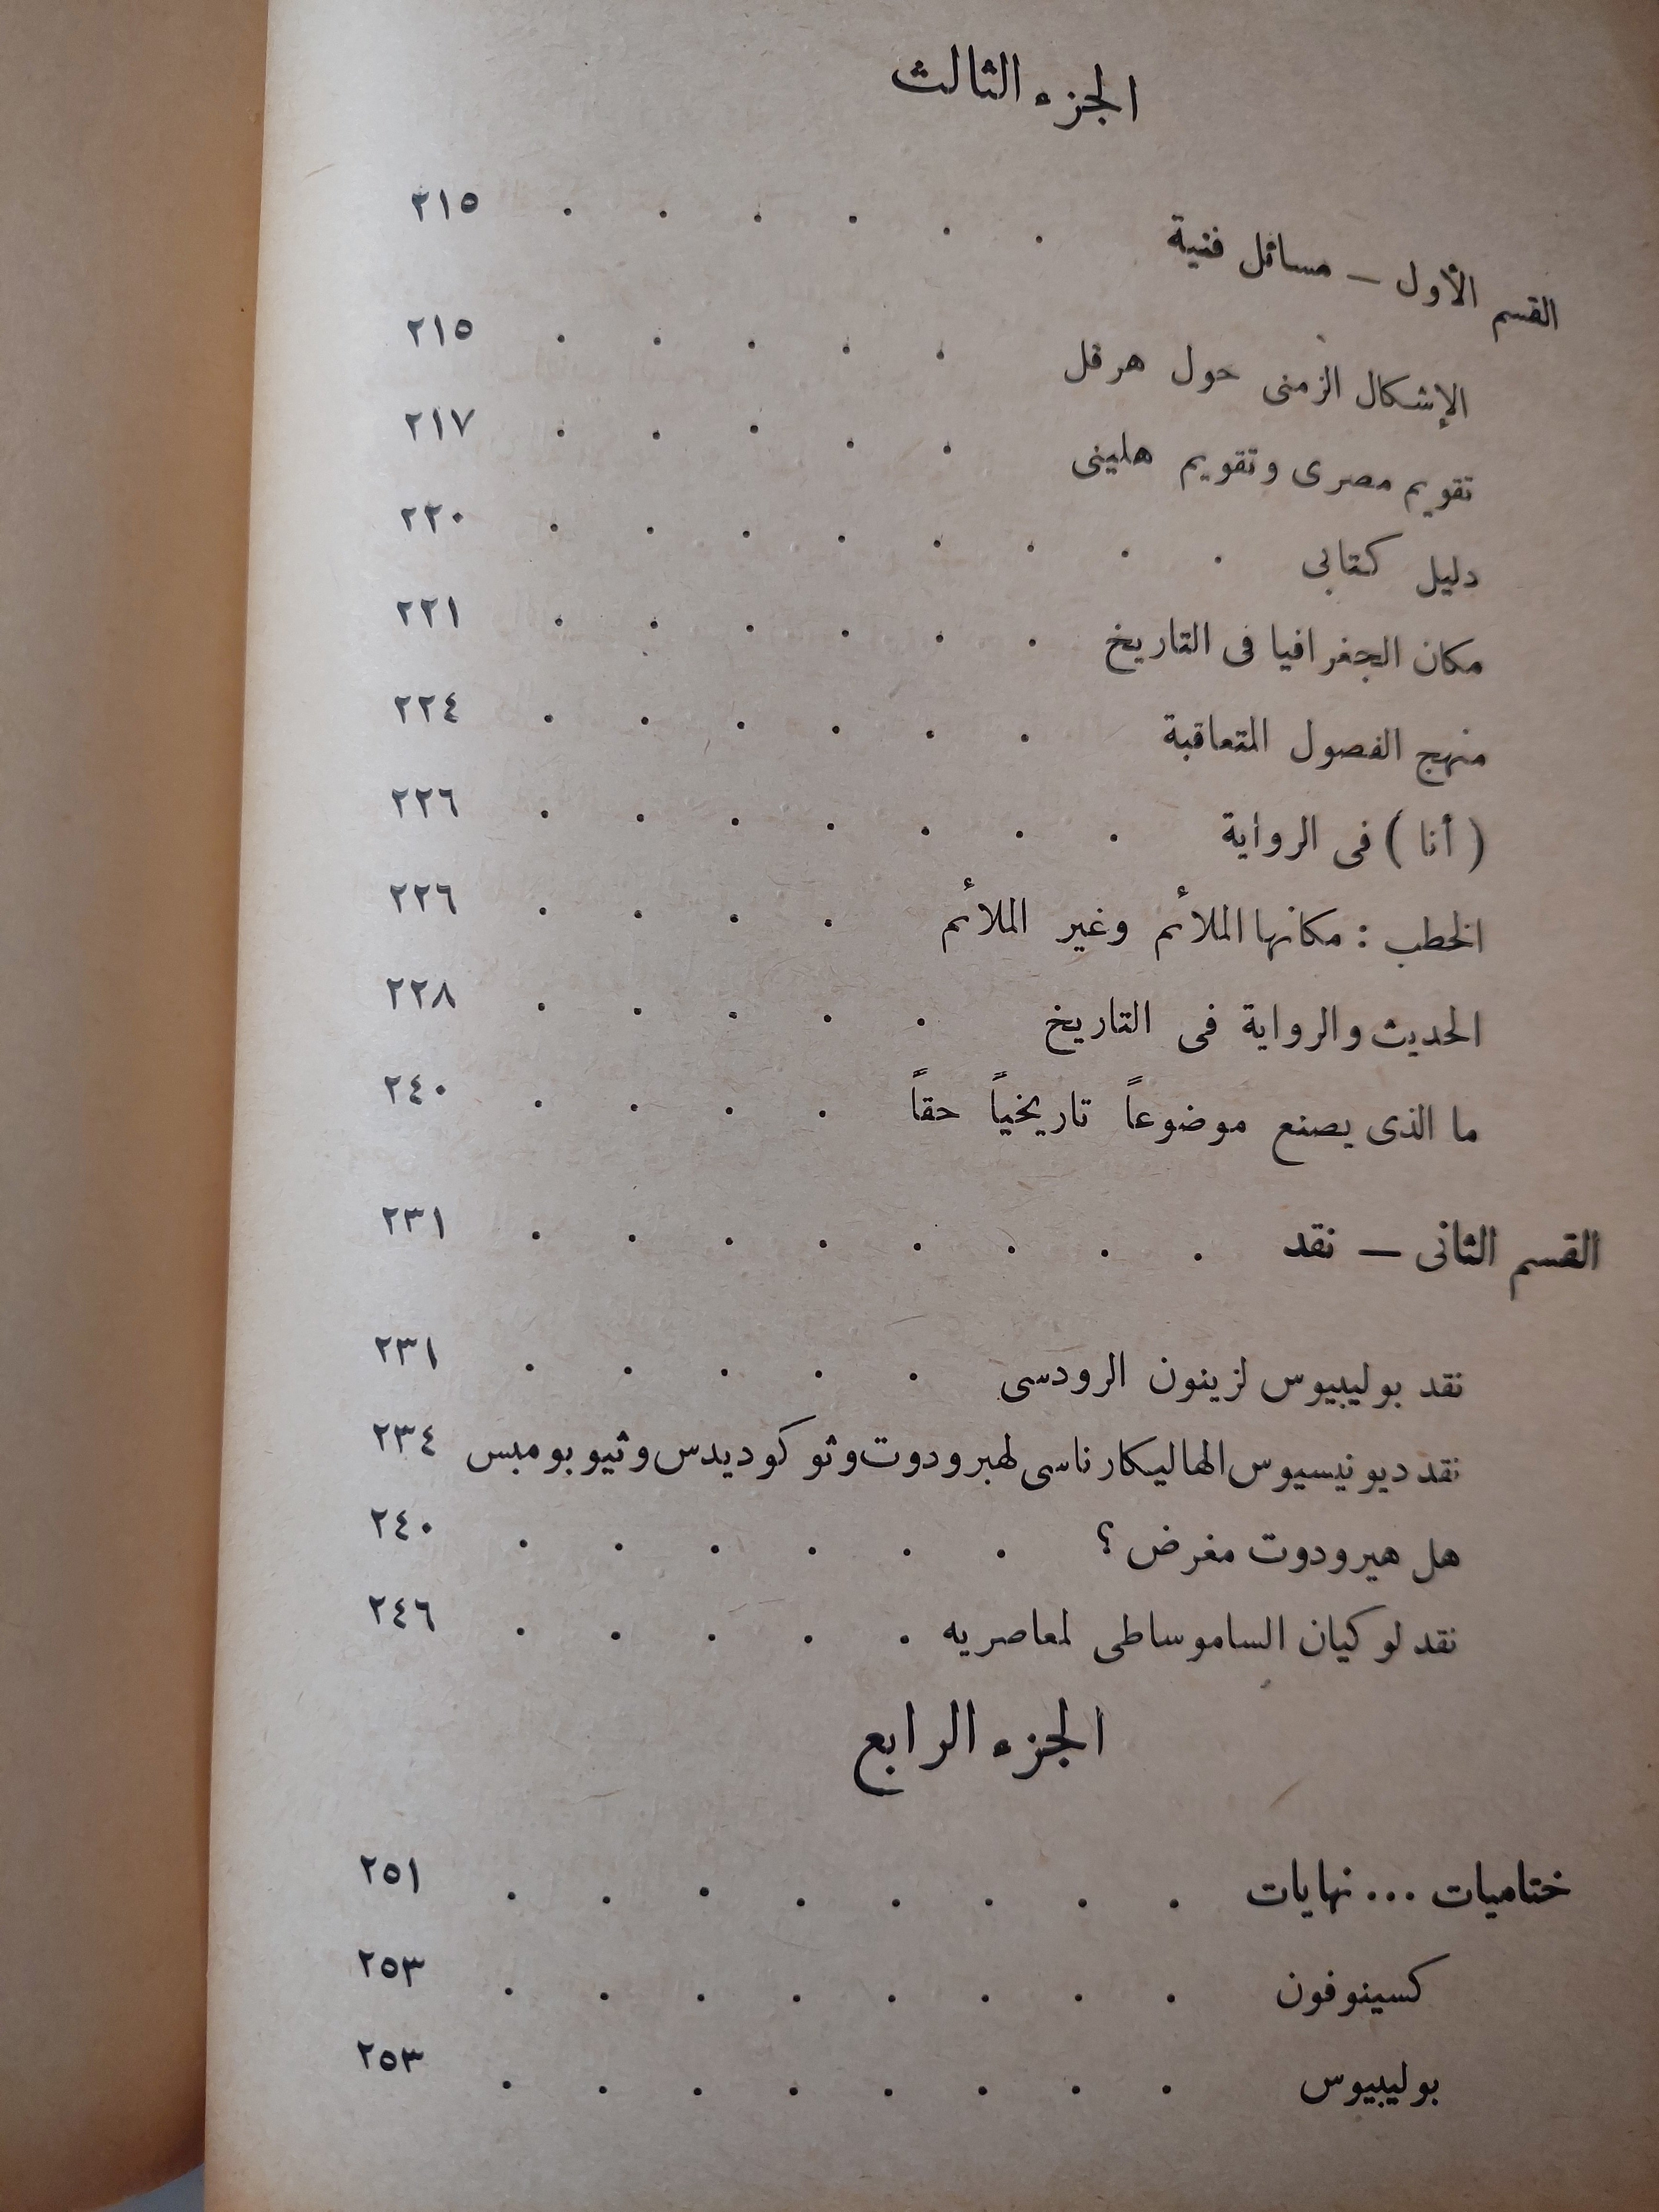 الجزء الثالث
القسم الأول — مسائل فنية ٢١٥
الإشكال الزمنى حول هرقل ٢١٥
تقويم مصرى وتقويم هلينى ٢١٧
دليل كتابى ٢٢٠
مكان الجغرافيا فى التاريخ ٢٢١
منهج الفصول المتعاقبة ٢٢٤
( أنا ) فى الرواية ٢٢٦
الخطب : مكانها الملأئم وغير الملأئم ٢٢٦
الحديث والرواية فى التاريخ ٢٢٨
ما الذى يصنع موضوعاً تاريخياً حقاً ٢٤٠
القسم الثانى — نقد ٢٣١
نقد بوليبيوس لزينون الرودسى ٢٣١
نقد ديونيسيوس الهاليكارناسى لهيرودوت وثوكوديدس وثيوبومبس ٢٣٤
هل هيرودوت مغرض ؟ ٢٤٠
نقد لوكيان الساموساطى لمعاصريه ٢٤٦
الجزء الرابع
ختاميات ... نهايات ٢٥١
كسينوفون ٢٥٣
بوليبيوس ٢٥٣